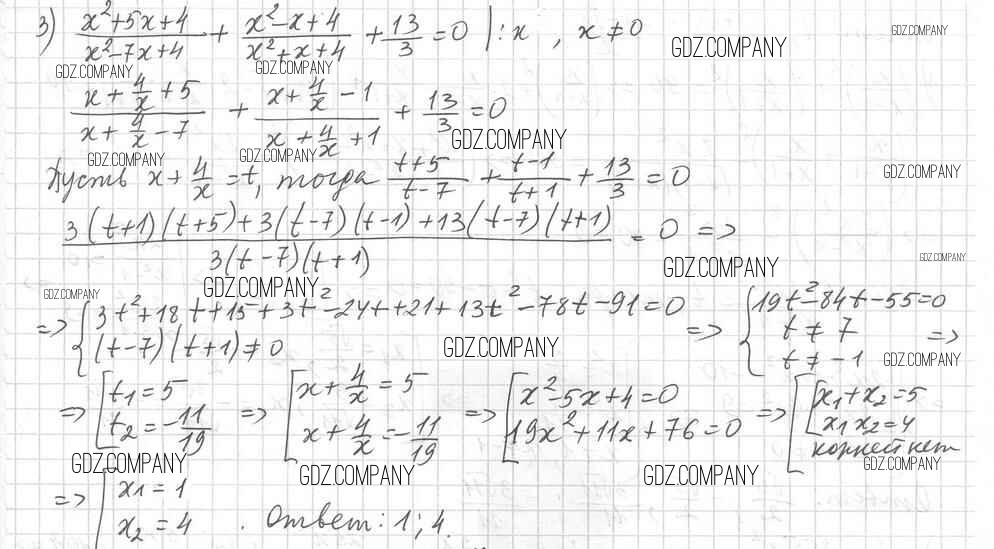 3) (x²+5x+4)/(x²-7x+4) + (x²-x+4)/(x²+x+4) + 13/3 = 0 |:x , x ≠ 0
GDZ.COMPANY
GDZ.COMPANY
GDZ.COMPANY GDZ.COMPANY
(x + 4/x + 5)/(x + 4/x - 7) + (x + 4/x - 1)/(x + 4/x + 1) + 13/3 = 0
GDZ.COMPANY
GDZ.COMPANY GDZ.COMPANY
Пусть x + 4/x = t, тогда (t+5)/(t-7) + (t-1)/(t+1) + 13/3 = 0
GDZ.COMPANY
(3(t+1)(t+5)+3(t-7)(t-1)+13(t-7)(t+1))/(3(t-7)(t+1)) = 0 =>
GDZ.COMPANY
GDZ.COMPANY
GDZ.COMPANY GDZ.COMPANY
=> { 3t²+18t+15+3t²-24t+21+13t²-78t-91=0 => { 19t²-84t-55=0
(t-7)(t+1)≠0 t ≠ 7 =>
t ≠ -1
GDZ.COMPANY GDZ.COMPANY
=> [ t₁ = 5 => [ x + 4/x = 5 => [ x²-5x+4=0 => [ [ x₁+x₂=5
t₂ = -11/19 x + 4/x = -11/19 19x²+11x+76=0 x₁x₂=4
корней нет
GDZ.COMPANY GDZ.COMPANY GDZ.COMPANY GDZ.COMPANY
=> [ x₁ = 1
x₂ = 4 . Ответ: 1; 4.